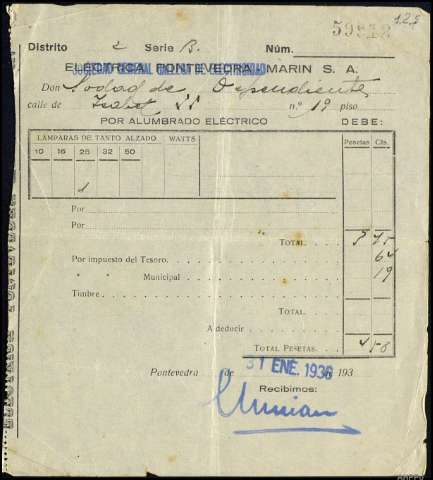 125
Distrito 2 Serie B. Núm.
ELÉCTRICA PONTEVEDRA MARIN S. A.
SOCIEDAD GENERAL GALLEGA DE ELECTRICIDAD
Don Sodad de Dependientes
calle de Isabel II n.º 19 piso
POR ALUMBRADO ELÉCTRICO DEBE:
LÁMPARAS DE TANTO ALZADO WATTS Pesetas Cts.
10 16 25 32 50
1
Por
Por
TOTAL. 3 75
Por impuesto del Tesoro. 64
" " Municipal 19
Timbre
TOTAL.
A deducir
TOTAL PESETAS. 4 58
Pontevedra de de 193
31 ENE. 1936
Recibimos: